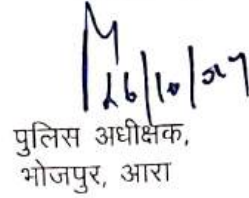 26/10/07
पुलिस अधीक्षक,
भोजपुर, आरा